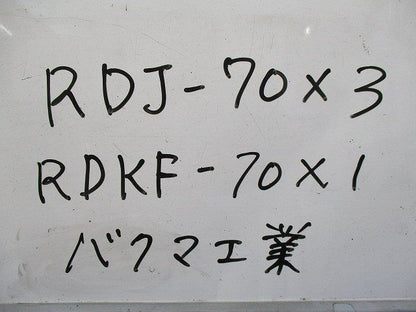 RDJ-70×3
RDKF-70×1
バクマ工業